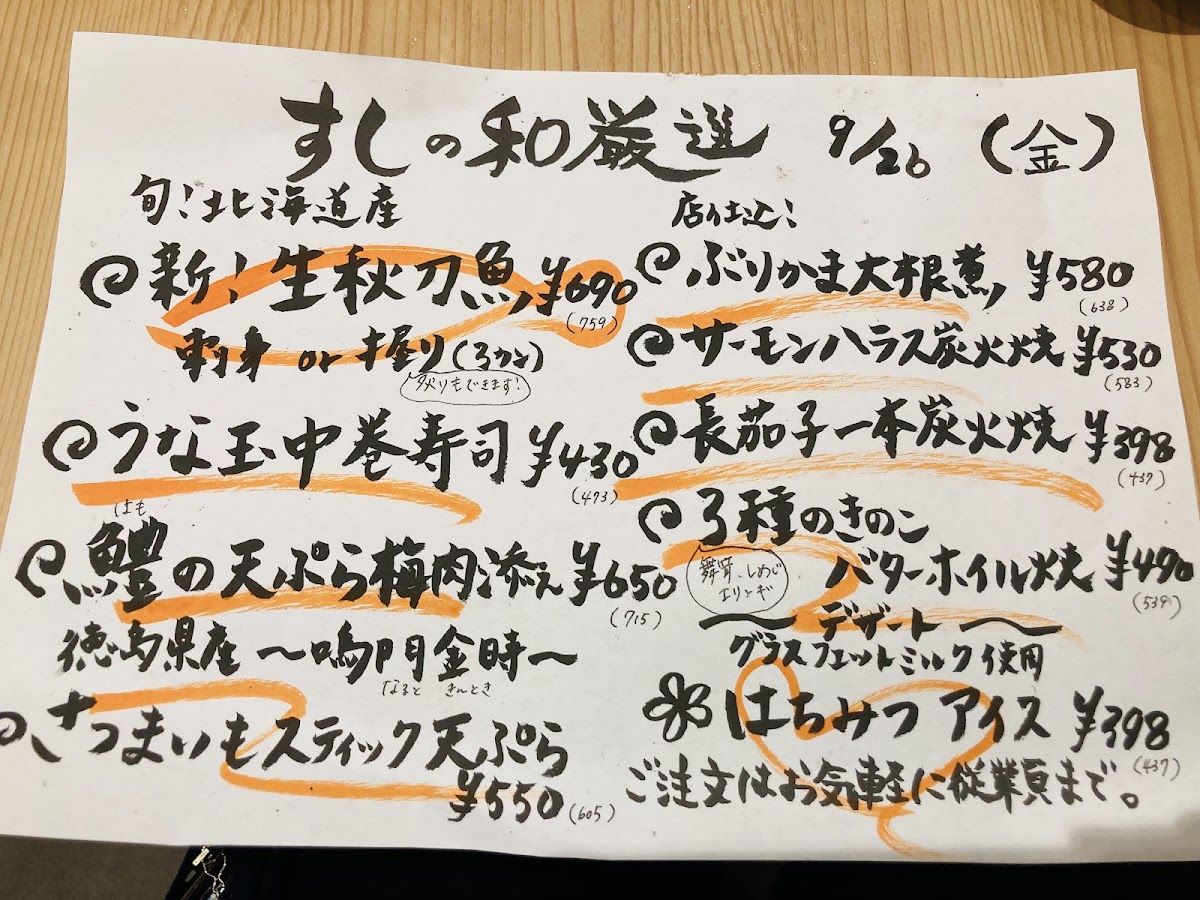 すしの和厳選 9/26 (金)
旬!北海道産
新!生秋刀魚 ¥690
(759)
刺身 or 握り(3カン)
炙りもできます!
うな玉中巻寿司 ¥430
(473)
はも
鱧の天ぷら梅肉添え ¥650
(715)
徳島県産 〜鳴門金時〜
なると きんとき
さつまいもスティック天ぷら
¥550 (605)
店仕込!
ぶりかま大根煮 ¥580
(638)
サーモンハラス炭火焼 ¥530
(583)
長茄子一本炭火焼 ¥398
(437)
3種のきのこ
バターホイル焼 ¥490
(539)
舞茸、しめじ
エリンギ
〜デザート〜
グラスフェットミルク使用
はちみつ アイス ¥398
(437)
ご注文はお気軽に従業員まで。